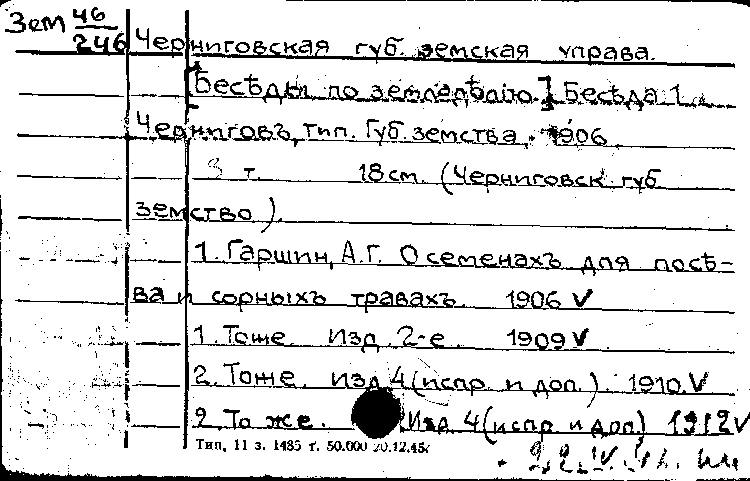 Зем 46/246
Черниговская губ. земская управа.
[Бесѣды по земледѣлію.] Бесѣда 1
Черниговъ, тип. Губ. земства, 1906.
3 т. 18 см. (Черниговск. губ
земство).
1. Гаршин, А.Г. О семенахъ для посѣ-
ва и сорныхъ травахъ. 1906 V
1. Тоже. Изд. 2-е. 1909 V
2. Тоже. Изд 4 (испр. и доп.). 1910. V
2. То же. Изд. 4 (испр и доп) 1912 V
Тип. 11 з. 1485 т. 50.000 20.12.45г